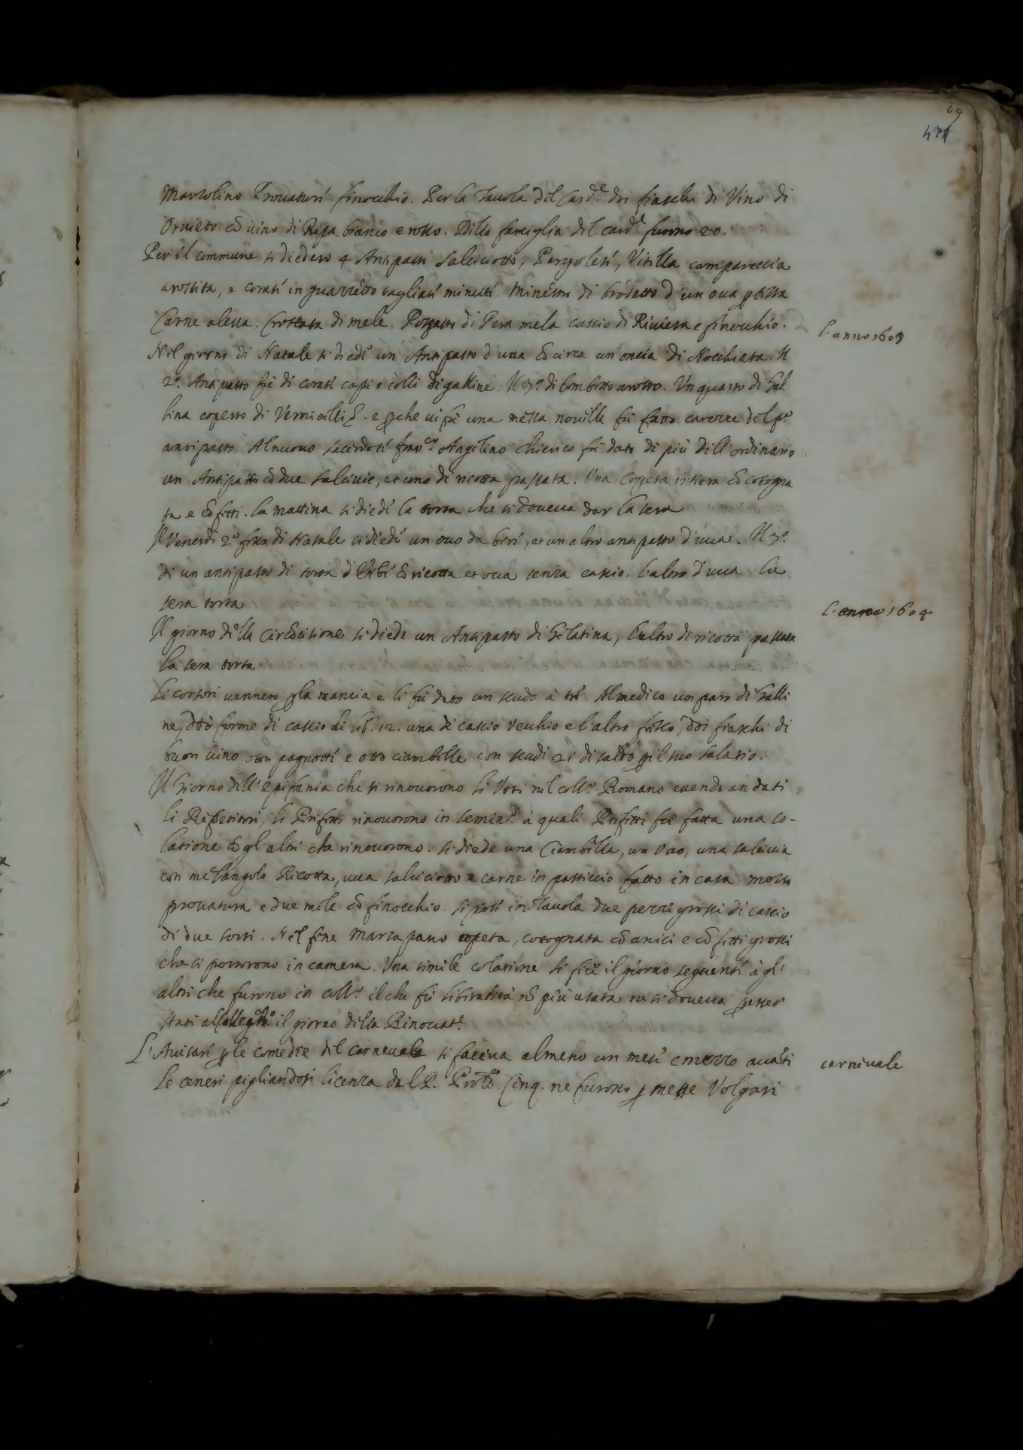 29
471
Marzolino Provature finocchio. Per la Tavola del Card.le doi fiaschi di Vino di
Orvieto cō vino di Ripa bianco e rosso. Della famiglia del card.l furono 20.
Per il commune si diedero 4 Antipasti Salciciotto, Vitella camporeccia
arostita, e corati in tagliati minuti. Minestra di brodetto d'un ova p testa
Carne alessa. Crostata di mele. di Pera mela cascio di Riviera e finocchio.
l'anno 1603
Nel giorno di Natale si diede un Antipasto d'uva cō circa un'oncia di Nociata. Il
2.o Antipasto fu di corati capi e colli di galline. Il 3.o di lombetto arosto. Un quarto di Gal
lina coperto di Vermicelli &. e pche vi fu una messa novella fu fatto del p.o
antipasto. Al nuovo sacerdote fran.co Angelino chierico fu dato di più dell'ordinario
un Antipasto cō due salcicie, et uno di ricotta passata. Una Copeta intiera cō cotogna
ta e cōfetti. la mattina si diede la torta che si doveva dar la sera
Il Venerdi 2.a festa di Natale si diede un ovo da bere, et un altro antipasto d'uva. Il 3.o
di un antipasto di torta d'erbe cō ricotta et ova senza cascio. l'altro d'uva la
sera torta
l'anno 1604
Il giorno della Circōcisione si diede un Antipasto di Gelatina, l'altro di ricotta passata
la sera torta
Li corsori vennero p la mancia e li fu dato un scudo à trè. Al medico un paro di Galli
ne, due forme di cascio di lib. 12. una di cascio vecchio e l'altro fresco, doi fiaschi di
buon vino otto pagnotte e otto ciambelle con scudi 21 di p il suo salario.
Il Giorno dell'Epifania che si rinovorono li Voti nel coll.o Romano essendo andati
li Refetorieri, li Prefetti rinovorono in à quali Prefetti fu fatta una co-
latione cō gl'altri che rinovorono. si diede una Ciambella, un Ovo, una salcicia
con melangolo Ricotta, uva salciciotto e carne in pasticcio fatto in casa mezza
provatura e due mele cō finocchio. si pose in Tavola due pezzi grossi di cascio
di due sorti. Nel fine Marzapano copeta, cotognata cō anici e cōfetti grossi
che si portorono in camera. Una simile colatione si fece il giorno seguente à gl'
altri che furono in coll.o il che fu liberalità nō più usata ne si doveva p esser
stati il giorno della Rinovat.e
carnevale
L'Avisare p le comedie del carnevale si faceva almeno un mese e mezzo avāti
le ceneri pigliandosi licenza dal P. Cinq. ne furono p messe Volgari